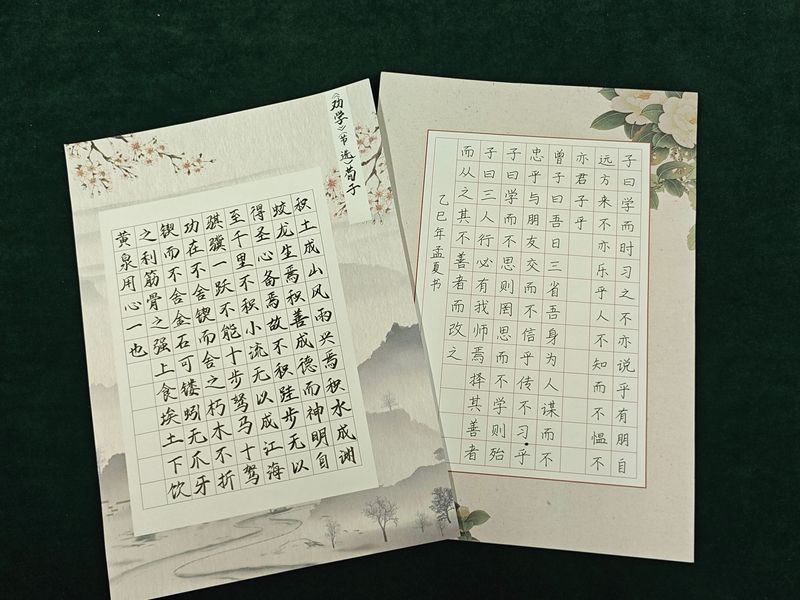 《劝学》(节选)荀子
积土成山风雨兴焉积水成渊
蛟龙生焉积善成德而神明自
得圣心备焉故不积跬步无以
至千里不积小流无以成江海
骐骥一跃不能十步驽马十驾
功在不舍锲而舍之朽木不折
锲而不舍金石可镂蚓无爪牙
之利筋骨之强上食埃土下饮
黄泉用心一也
子曰学而时习之不亦说乎有朋自
远方来不亦乐乎人不知而不愠不
亦君子乎
曾子曰吾日三省吾身为人谋而不
忠乎与朋友交而不信乎传不习乎
子曰学而不思则罔思而不学则殆
子曰三人行必有我师焉择其善者
而从之其不善者而改之
乙巳年孟夏书